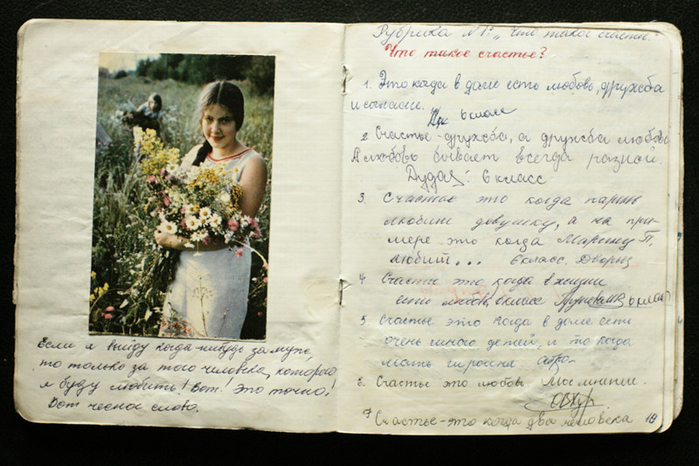 Если я выйду когда-нибудь замуж,
то только за того человека, которого
я буду любить! Вот! Это точно!
Вот честное слово.
Рубрика №1: „Что такое счастье.
Что такое счастье?
1. Это когда в доме есть любовь, дружба
и согласие.
6 класс
2. Счастье - дружба, а дружба любовь
А любовь бывает всегда разной.
6 класс
3. Счастье это когда парень
любит девушку, а на при-
мере это когда Марсику П.
любит... 6 класс. Дворец
4 Счастье это, когда в жизни
есть любовь 6 класс
5 Счастье это когда в доме есть
очень много детей, и то когда
мать
6. Счастье это любовь Мое мнение.
7 Счастье - это когда два человека 18